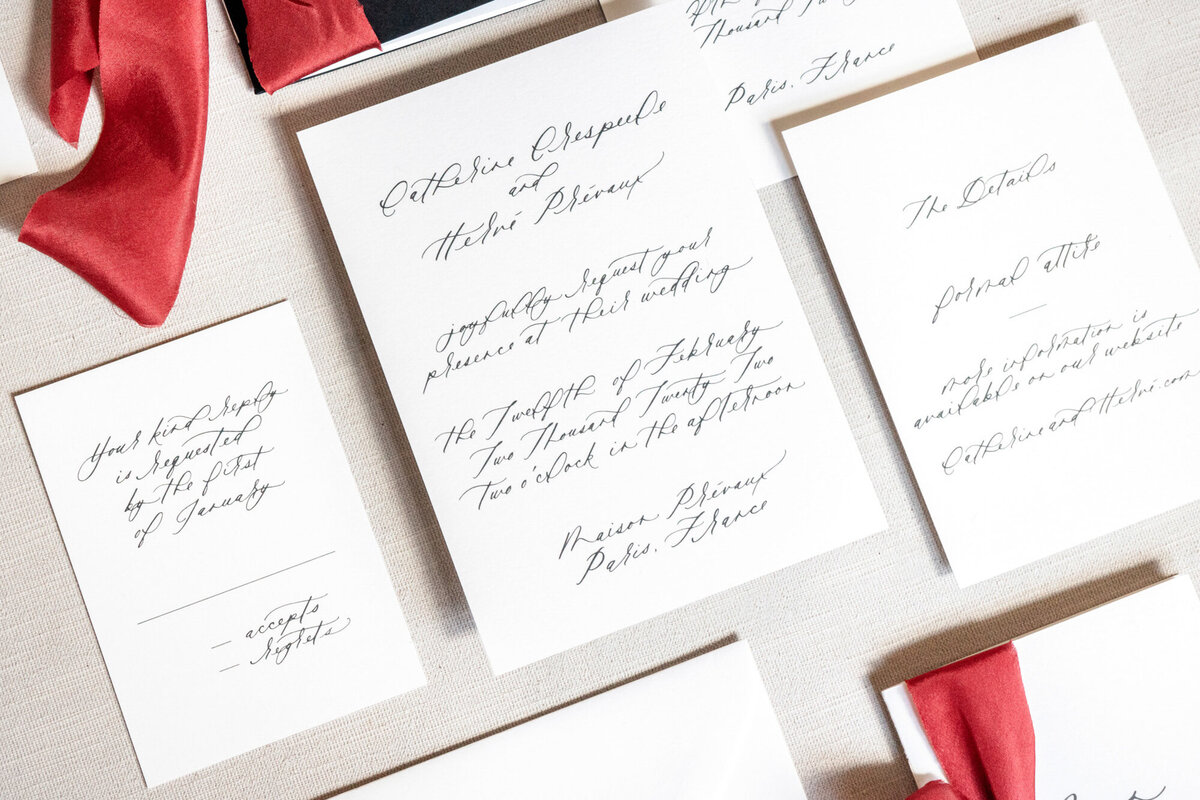 Thousand Twenty
Paris, France
Catherine Crespeele
and
Hervé Prévaux
joyfully request your
presence at their wedding
the Twelfth of February
Two Thousand Twenty Two
Two o'clock in the afternoon
Maison Prévaux
Paris, France
The Details
formal attire
more information is
available on our website
CatherineandHervé.com
Your kind reply
is requested
by the first
of January
accepts
regrets